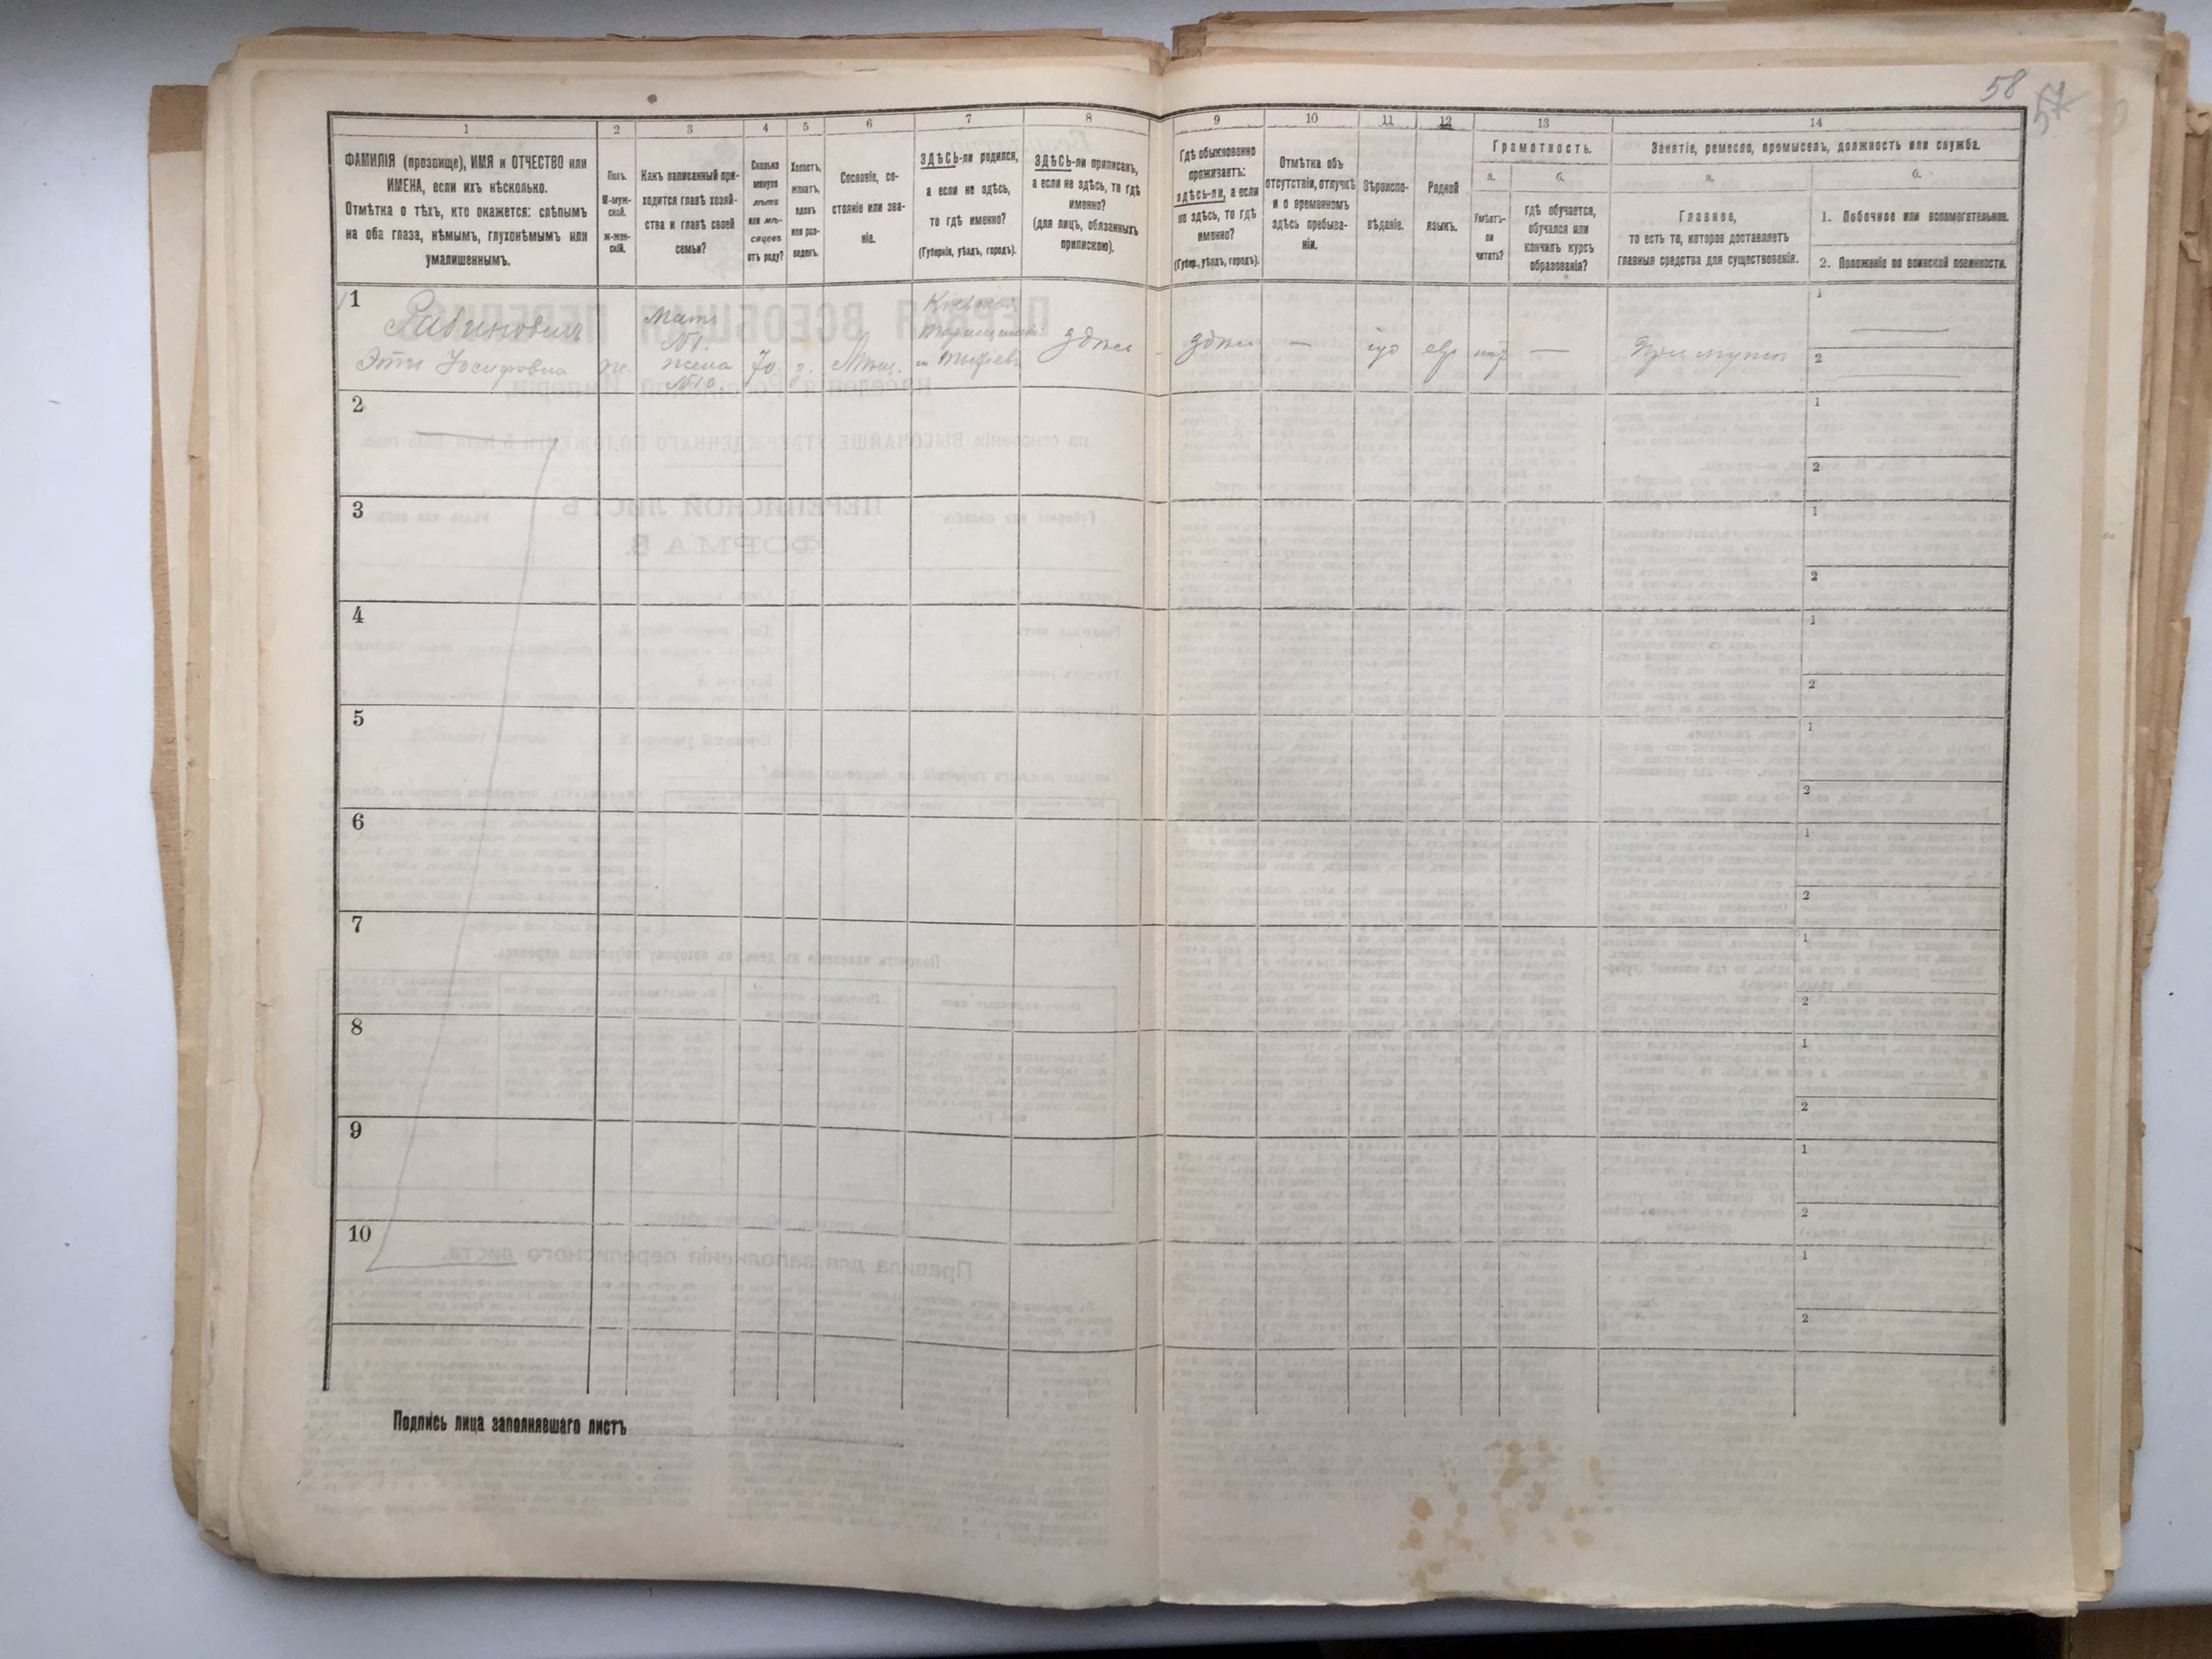 58
57
1
2
3
4
5
6
7
8
9
10
11
12
13
14
ФАМИЛІЯ (прозвище), ИМЯ и ОТЧЕСТВО или
ИМЕНА, если ихъ нѣсколько.
Отмѣтка о тѣхъ, кто окажется: слѣпымъ
на оба глаза, нѣмымъ, глухонѣмымъ или
умалишеннымъ.
Полъ.
М-муж-
ской.
Ж-жен-
скій.
Какъ записанный при-
ходится главѣ хозяй-
ства и главѣ своей
семьи?
Сколько
минуло
лѣтъ
или мѣ-
сяцевъ
отъ роду?
Холостъ,
женатъ,
вдовъ
или раз-
веденъ.
Сословіе, со-
стояніе или зва-
ніе.
ЗДѢСЬ-ли родился,
а если не здѣсь,
то гдѣ именно?
(Губернія, уѣздъ, городъ).
ЗДѢСЬ-ли приписанъ,
а если не здѣсь, то гдѣ
именно?
(для лицъ, обязанныхъ
припискою).
Гдѣ обыкновенно
проживаетъ:
здѣсь-ли, а если
не здѣсь, то гдѣ
именно?
(Губер., уѣздъ, городъ).
Отмѣтка объ
отсутствіи, отлучкѣ
и о временномъ
здѣсь пребыва-
ніи.
Вѣроиспо-
вѣданіе.
Родной
языкъ.
Грамотность.
а.
б.
Умѣетъ-
ли
читать?
гдѣ обучается,
обучался или
кончилъ курсъ
образованія?
Занятіе, ремесло, промыселъ, должность или служба.
а.
б.
Главное,
то есть то, которое доставляетъ
главныя средства для существованія.
1. Побочное или вспомогательное.
2. Положеніе по воинской повинности.
1
Рабиновичъ
Эти Іосифовна
ж.
Мать
№1.
жена
№10.
70.
з.
Мѣщ.
Кіевская
здѣсь
здѣсь
—
іуд
евр
нѣт
—
При мужѣ
1
2
2
1
2
3
1
2
4
1
2
5
1
2
6
1
2
7
1
2
8
1
2
9
1
2
10
1
2
Подпись лица заполнявшаго листъ